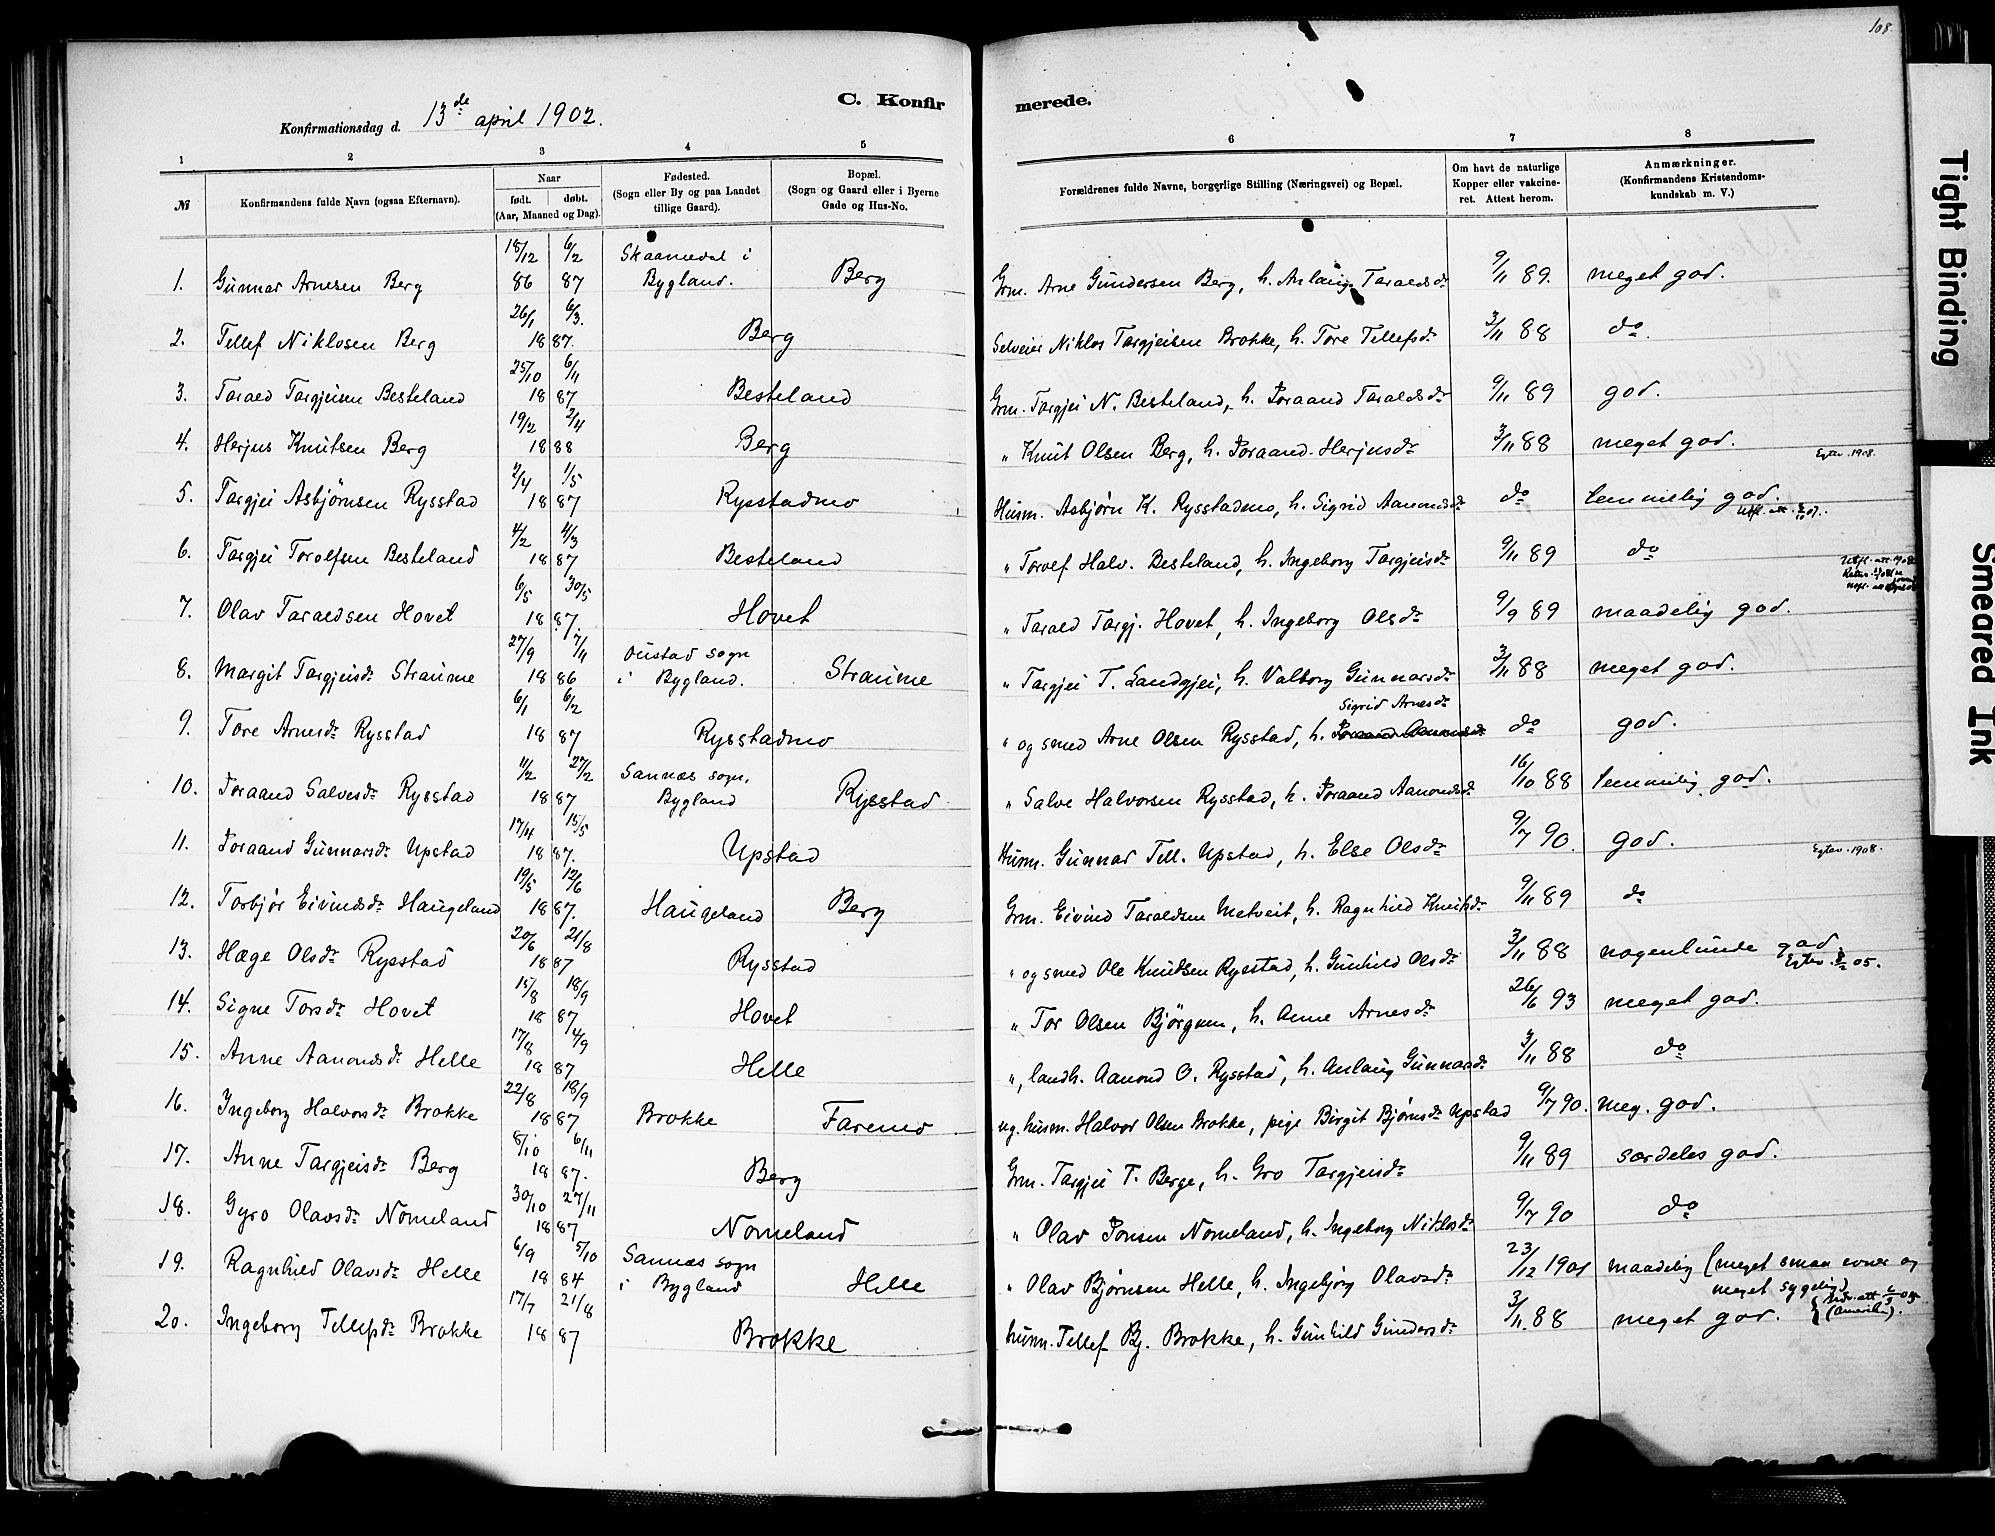 108.
Tight Binding
Smeared Ink
C. Konfir merede.
Konfirmationsdag d. 13de april 1902.
1 2 3 4 5 6 7 8
№ Konfirmandens fulde Navn (ogsaa Efternavn). Naar født. døbt. (Aar, Maaned og Dag). Fødested. (Sogn eller By og paa Landet tillige Gaard). Bopæl. (Sogn og Gaard eller i Byerne Gade og Hus-No. Forældrenes fulde Navne, borgerlige Stilling (Næringsvei) og Bopæl. Om havt de naturlige Kopper eller vakcineret. Attest herom. Anmærkninger. (Konfirmandens Kristendomskundskab m. V.)
1. Gunnar Arnesen Berg 18/12 86 6/2 87 Skaanedal i Bygland. Berg Grm. Arne Gundersen Berg, h. Anlaug Taraldsdr 9/11 89. meget god.
2. Tellef Niklosen Berg 26/1 6/3. 1887. Berg Selveier Niklos Targjeisen Brokke, h. Tore Tellefsdr 3/11 88 do.
3. Tarald Targjeisen Besteland 25/10 6/11 1887 Besteland Grm. Targjei N. Besteland, h. Joraand Taraldsdr 9/11 89 god.
4. Herjus Knutsen Berg 19/2 2/4 1888 Berg " Knut Olsen Berg, h. Joraand Herjusdr 3/11 88 meget god.
Egtev. 1908.
5. Targjei Asbjørnsen Rysstad 2/4 1/5 1887 Rysstadmo Husm. Asbjørn K. Rysstadmo, h. Sigrid Aanondsdr do temmelig god.
6. Targjei Torolfsen Besteland 4/2 4/3 1887 Besteland " Torolf Halv. Besteland, h. Ingeborg Targjeisdr 9/11 89 do
7. Olav Taraldsen Hovet 6/5 30/5 1887. Hovet " Tarald Targj. Hovet, h. Ingeborg Olsdr 9/9 89 maadelig god.
8. Margit Targjeisdr Straume 27/9 7/11 1886 Oustad sogn i Bygland. Straume " Targjei T. Landgjei, h. Valborg Gunnarsdr 3/11 88 meget god.
9. Tore Arnesdr Rysstad 6/1 6/2 1887 Rysstadmo " og smed Arne Olsen Rysstad, h. Joraand Aanondsdr Sigrid Arnesdr do god.
10. Joraand Salvesdr Rysstad 11/2 27/2 1887 Sannæs sogn, Bygland Rysstad " Salve Halvorsen Rysstad, h. Joraand Aanondsdr 16/10 88 temmelig god.
11. Joraand Gunnarsdr Upstad 17/4 15/5 1887. Upstad Husm. Gunnar Tell. Upstad, h. Else Olsdr 9/7 90. god.
Egtev. 1908.
12. Torbjør Eivindsdr Haugeland 19/5 12/6 1887. Haugeland Berg Grm. Eivind Taraldsen Metveit, h. Ragnhild Knutsdr 9/11 89 do
13. Hæge Olsdr Rysstad 20/6 21/8 1887 Rysstad " og smed Ole Knudsen Rysstad, h. Gunhild Olsdr 3/11 88 nogenlunde god.
14. Signe Torsdr Hovet 15/8 18/9 1887 Hovet " Tor Olsen Bjørgum, h. Anne Arnesdr 26/6 93 meget god.
15. Anne Aanondsdr Helle 17/8 4/9 1887 Helle ", landh. Aanond O. Rysstad, h. Anlaug Gunnarsdr 3/11 88 do
16. Ingeborg Halvorsdr Brokke 22/8 18/9 1887 Brokke Faremo ug. husm. Halvor Olsen Brokke, pige Birgit Bjørnsdr Upstad 9/7 90. meg. god.
17. Anne Targjeisdr Berg 8/10 6/11 1887. Berg Grm. Targjei T. Berge, h. Gro Targjeisdr 9/11 89 særdeles god.
18. Gyro Olavsdr Nomeland 30/10 27/11 1887 Nomeland " Olav Jonsen Nomeland, h. Ingeborg Niklosdr 9/7 90 do
19. Ragnhild Olavsdr Helle 6/9 5/10 1884 Sannæs sogn i Bygland Helle " Olav Bjørnsen Helle, h. Ingebjørg Olavsdr 23/12 1901 maadelig (meget smaa evner og meget sygelig)
20. Ingeborg Tellefsdr Brokke 17/7 21/8 1887 Brokke husm. Tellef Bj. Brokke, h. Gunhild Gundersdr 3/11 88 meget god. (Amerika).